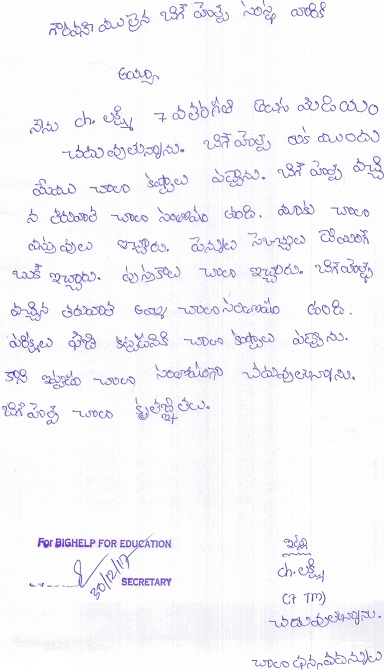 గౌరవనీయులైన బిగ్ హెల్ప్ సంస్థ వారికి
అయ్యా,
నేను ch. లక్ష్మి 7 వ తరగతి తెలుగు మీడియం
చదువుతున్నాను. బిగ్ హెల్ప్ రాక ముందు
మేము చాలా కష్టాలు పడ్డాను. బిగ్ హెల్ప్ వచ్చి
న తరువాత చాలా సంతోషం ఉంది. మాకు చాలా
వస్తువులు ఇచ్చారు. పెన్నులు డ్రాయింగ్
బుక్ ఇచ్చారు. పుస్తకాలు చాలా ఇచ్చారు. బిగ్ హెల్ప్
వచ్చిన తరువాత చాలా సంతోషం ఉంది.
ఫీజు కట్టడానికి చాలా కష్టాలు పడ్డాను.
కాని ఇప్పుడు చాలా సంతోషంగా చదువుతున్నాను.
బిగ్ హెల్ప్ చాలా కృతజ్ఞతలు.
For BIGHELP FOR EDUCATION
30/12/17
SECRETARY
ఇట్లు
ch. లక్ష్మి
(7 TM)
చదువుతున్నాను.
చాలా ధన్యవాదములు